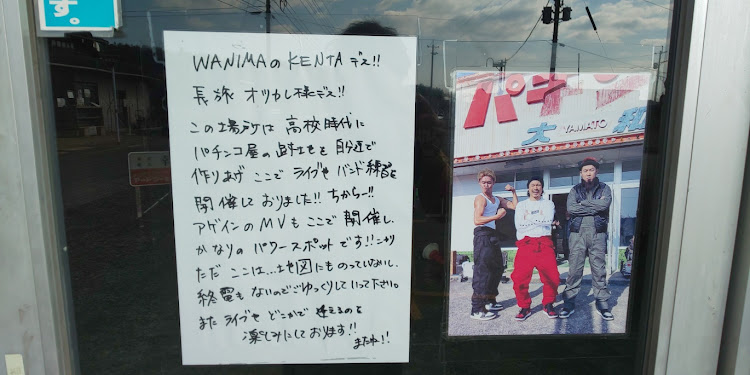 す。
WANIMAのKENTAデス!!
長旅 オツカレ様デス!!
この場所は 高校時代に
パチンコ屋の跡地を自分達で
作りあげ ここで ライブや バンド練習を
開催しておりました!! ちから〜!!
アゲインのMVもここで 開催し、
かなりの パワースポットです!!ニヤリ
ただ ここは...地図にものっていないし、
終電も ないのでごゆっくりしていって下さい。
また ライブや どこかで 逢えるのを
楽しみにしております!!
またね!!
パチン
大 YAMATO 和